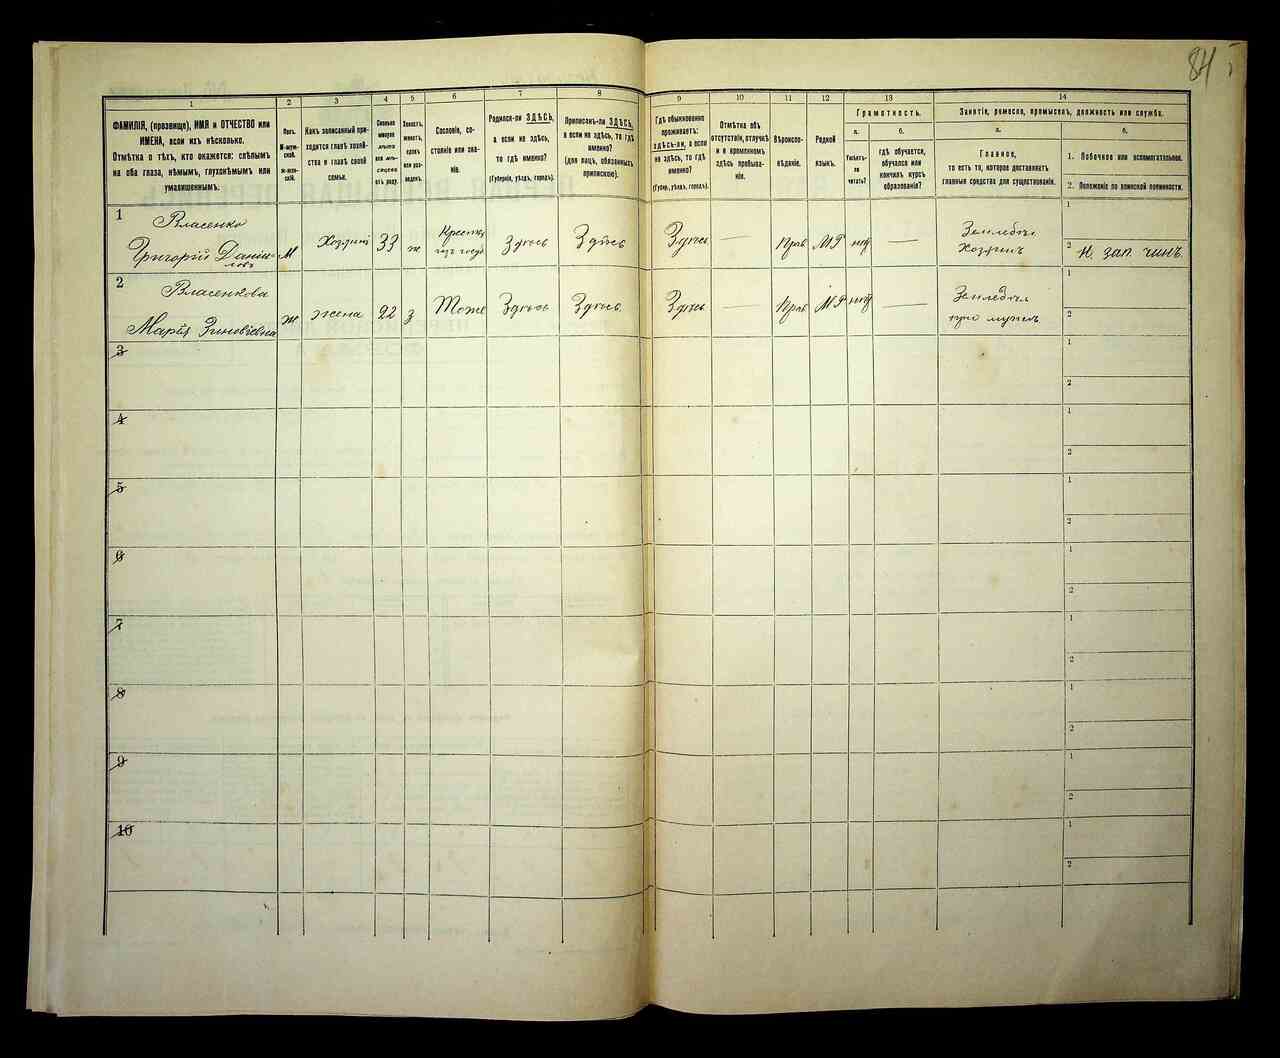 84
1
2
3
4
5
6
7
8
9
10
11
12
13
14
ФАМИЛІЯ, (прозвище), ИМЯ и ОТЧЕСТВО или
ИМЕНА, если ихъ нѣсколько.
Отмѣтка о тѣхъ, кто окажется: слѣпымъ
на оба глаза, нѣмымъ, глухонѣмымъ или
умалишеннымъ.
Полъ.
М-муж-
ской.
Ж-жен-
скій.
Какъ записанный при-
ходится главѣ хозяй-
ства и главѣ своей
семьи.
Сколько
минуло
лѣтъ
или мѣ-
сяцевъ
отъ роду.
Холостъ,
женатъ,
вдовъ
или раз-
веденъ.
Сословіе, со-
стояніе или зва-
ніе.
Родился-ли ЗДѢСЬ,
а если не здѣсь,
то гдѣ именно?
(Губернія, уѣздъ, городъ).
Приписанъ-ли ЗДѢСЬ,
а если не здѣсь, то гдѣ
именно?
(для лицъ, обязанныхъ
припискою).
Гдѣ обыкновенно
проживаетъ:
здѣсь-ли, а если
не здѣсь, то гдѣ
именно?
(Губер., уѣздъ, городъ).
Отмѣтка объ
отсутствіи, отлучкѣ
и о временномъ
здѣсь пребыва-
ніи.
Вѣроиспо-
вѣданіе.
Родной
языкъ.
Грамотность.
а.
Умѣетъ-
ли
читать?
б.
гдѣ обучается,
обучался или
кончилъ курсъ
образованія?
Занятіе, ремесло, промыселъ, должность или служба.
а.
Главное,
то есть то, которое доставляетъ
главныя средства для существованія.
б.
1. Побочное или вспомогательное.
2. Положеніе по воинской повинности.
1
Власенко
Григорій Данил-
ловъ
М
Хозяинъ
33
ж
Крестья
изъ госуд
Здѣсь
Здѣсь
Здѣсь
—
Прав
МР
нѣт
—
Земледѣл
Хозяинъ
1
2 Н. зап. чинъ.
2
Власенкова
Марія Зиновіевна
Ж
жена
22
з
Тоже
Здѣсь
Здѣсь
Здѣсь
—
Прав
МР
нѣт
—
Земледѣл
при мужѣ
1
2
3
1
2
4
1
2
5
1
2
6
1
2
7
1
2
8
1
2
9
1
2
10
1
2